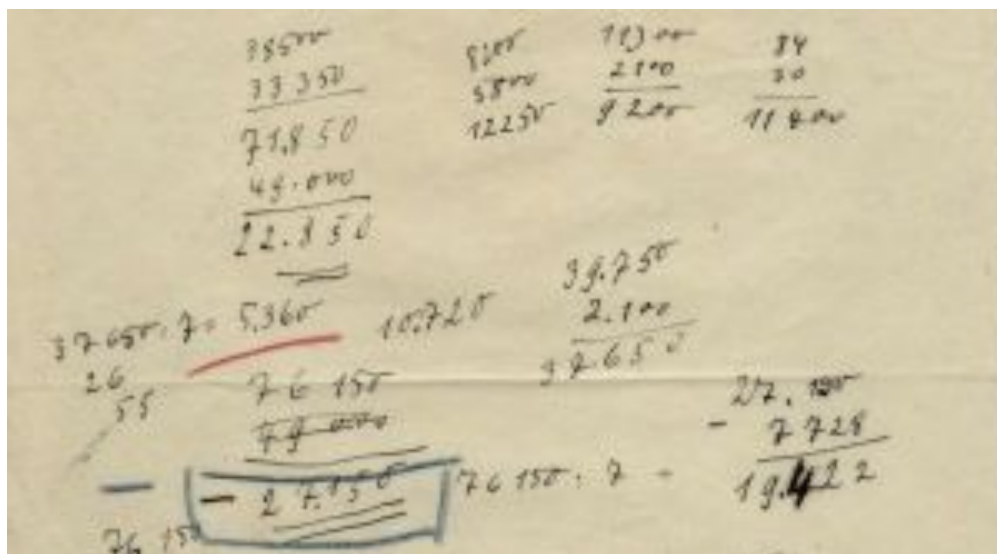 38500
33350
71.850
49.000
22.850
5800
12250
11300
2100
9200
84
30
39.750
2.100
37650
37650 : 7 = 5.360
10.720
26
55
76 150
79 000
- 27.150
76 150 : 7 =
27.150
- 7728
19.422
76 150